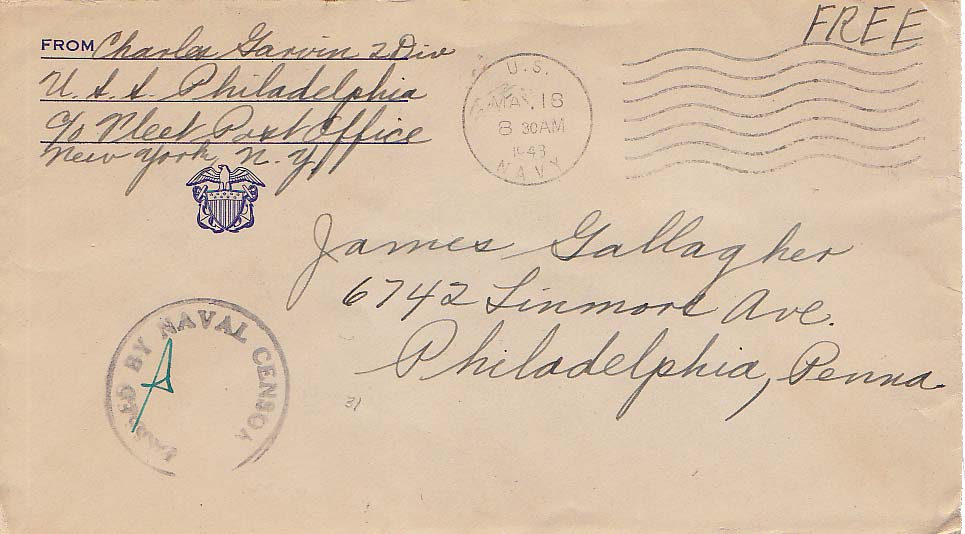 FROM Charles Garvin 2 Div
U.S.S. Philadelphia
c/o Fleet Post Office
New York, N.Y.
U.S.
MAY 18
8 30AM
1943
NAVY
FREE
James Gallagher
6742 Linmore Ave.
Philadelphia, Penna.
PASSED BY NAVAL CENSOR
31